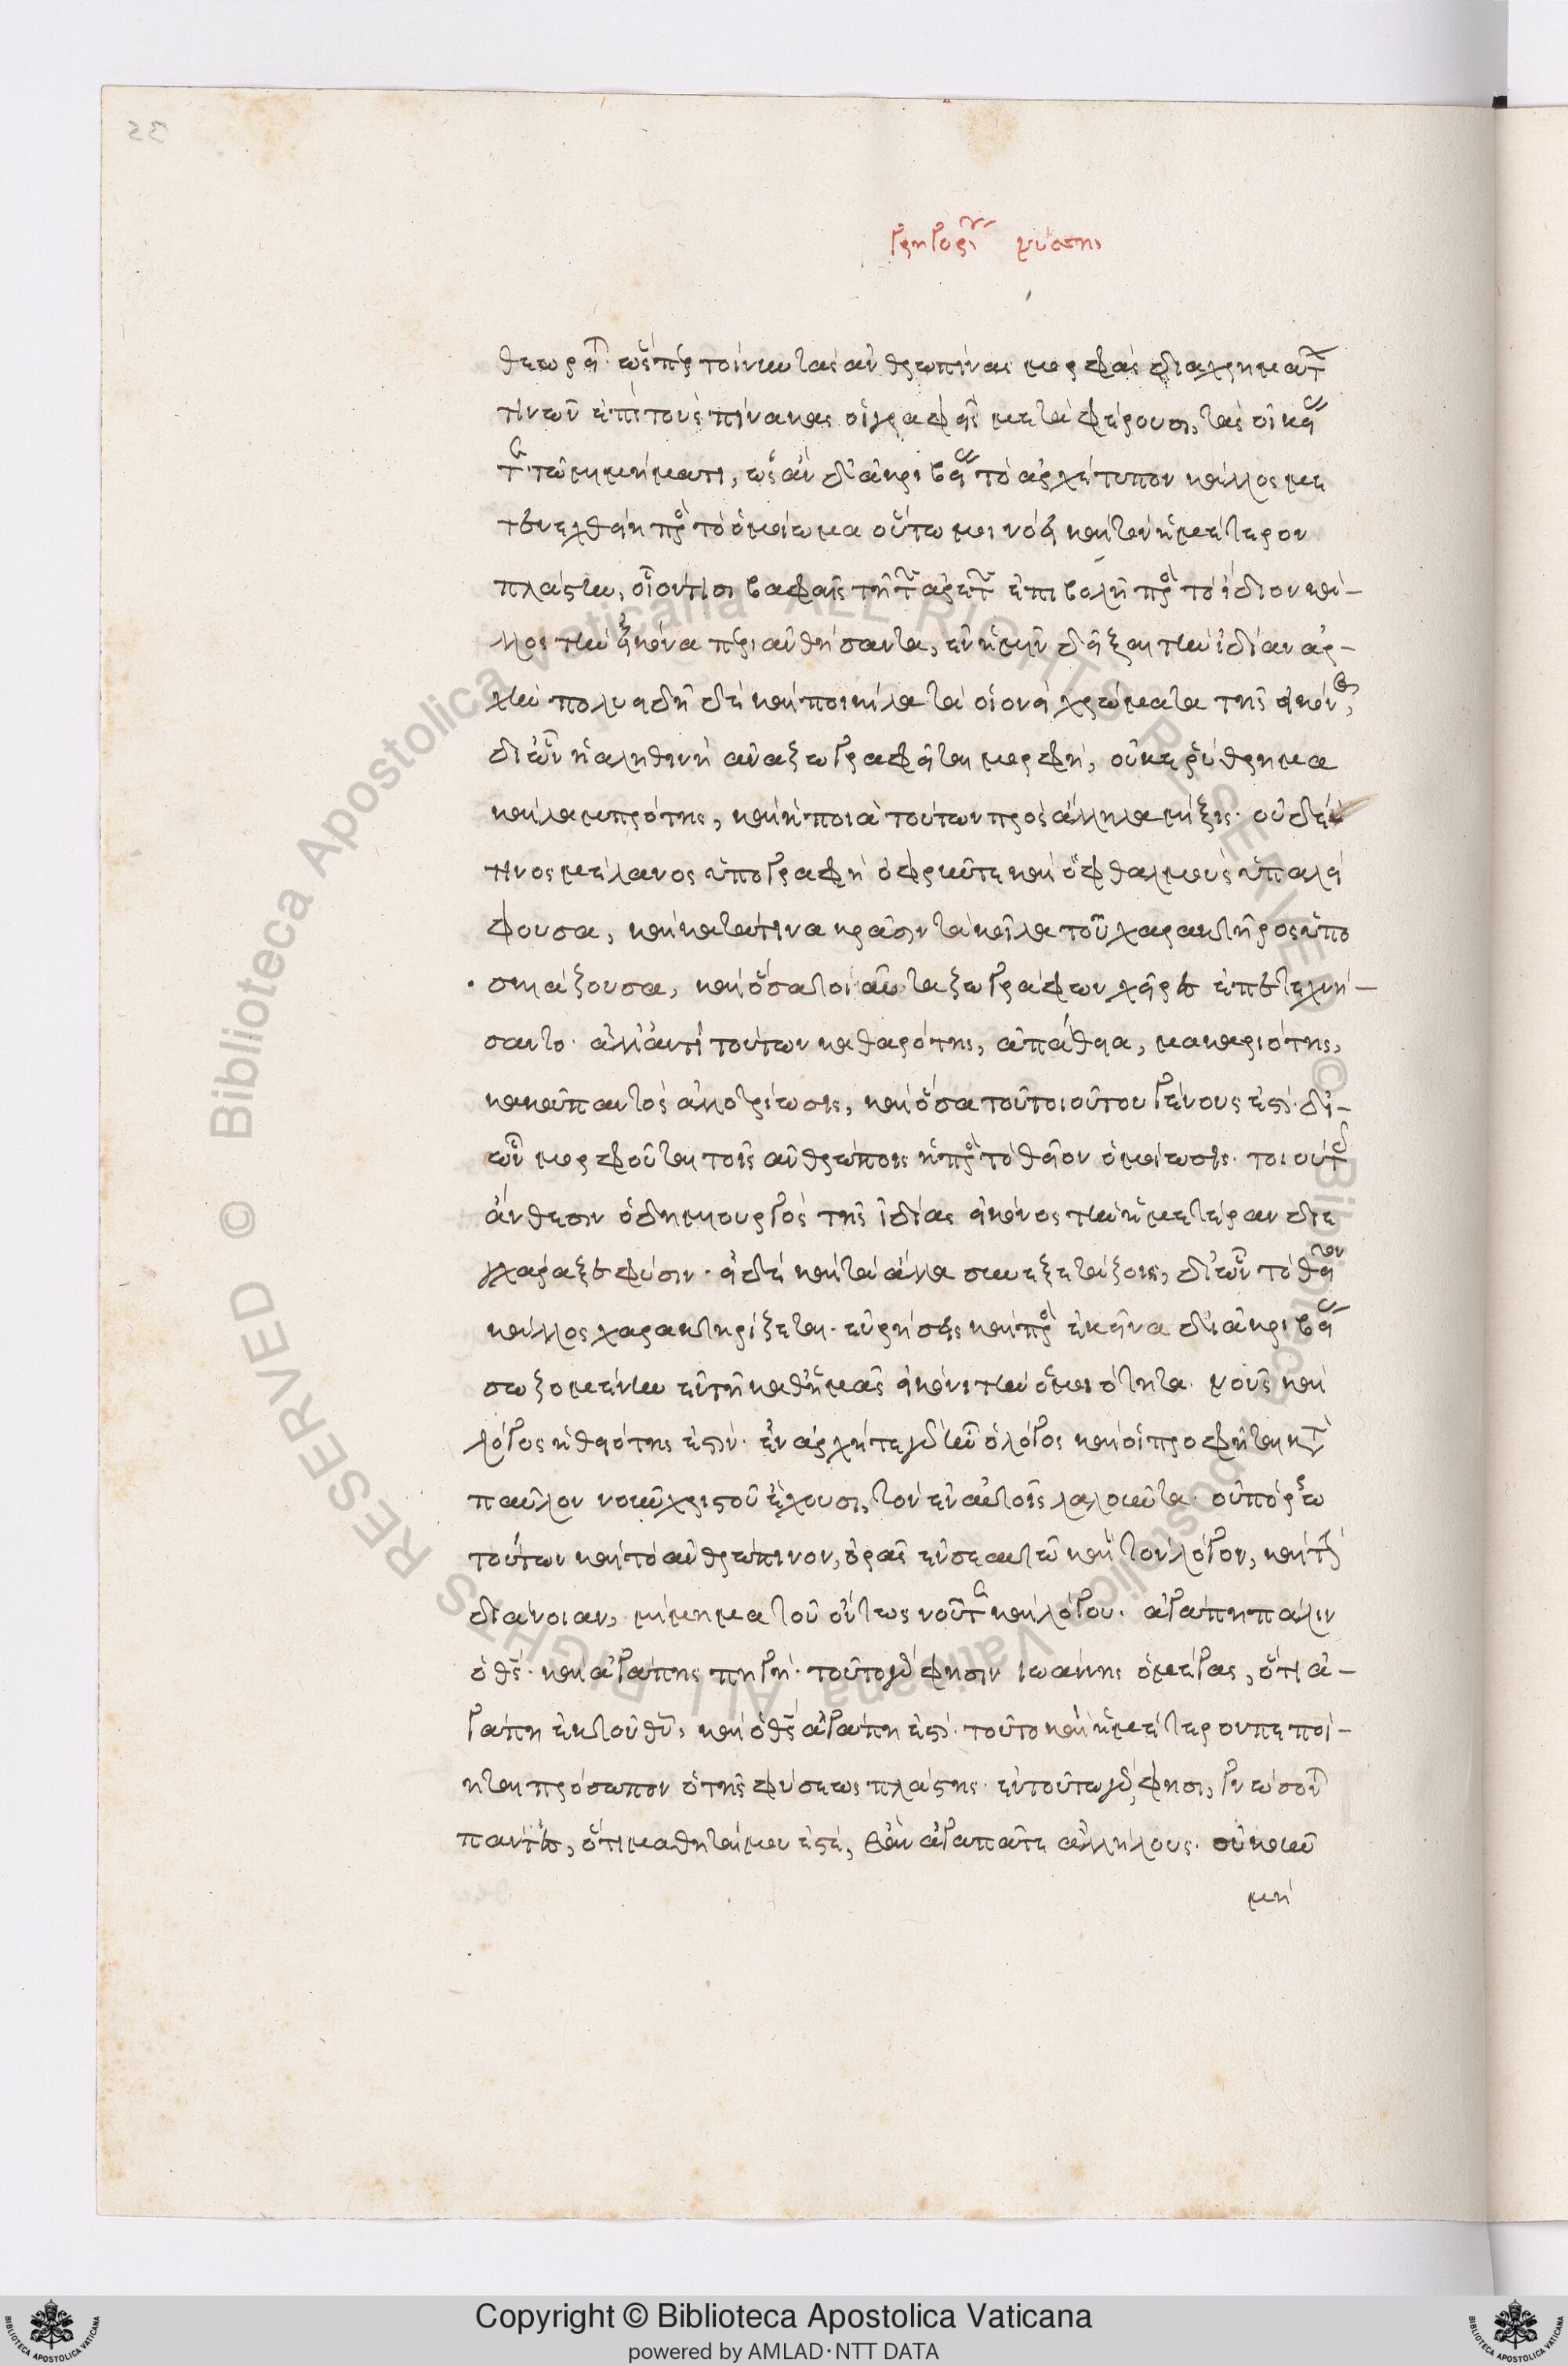 Γρηγορίου νύσης
θεωρεῖται· ὥσπερ τοίνυν τὰς ἀνθρωπίνας μορφὰς διὰ χρημάτων
τινῶν ἐπὶ τοὺς πίνακας οἱ γραφεῖς μεταφέρουσι, τὰς οἰκείας
τε τῷ μιμήματι, ὡς ἂν δι' ἀκριβείας τὸ ἀρχέτυπον κάλλος με
τενεχθείη πρὸς τὸ ὁμοίωμα οὕτω μοι νόει καὶ τὸν ἡμέτερον
πλάστην, οἷόν τισι βαφαῖς τῇ τῶν ἀρετῶν ἐπιβολῇ πρὸς τὸ ἴδιον κάλ-
λος τὴν εἰκόνα περιανθήσαντα, ἐν ἡμῖν δεῖξαι τὴν ἰδίαν ἀρ-
χήν πολυειδῆ δὲ καὶ ποικίλα τὰ οἱονεὶ χρώματα τῆς εἰκόνος,
δι' ὧν ἡ ἀληθινὴ ἀναζωγραφεῖται μορφή, οὐκ ἐρύθημα
καὶ λαμπρότης, καὶ ἡ ποιὰ τούτων πρὸς ἄλληλα μίξις· οὐδέ
τινος μέλανος ὑπογραφὴ ὀφρύν τε καὶ ὀφθαλμοὺς ὑπαλεί
φουσα, καὶ κατά τινα κρᾶσιν τὰ κοῖλα τοῦ χαρακτῆρος ὑπο
σκιάζουσα, καὶ ὅσα τοιαῦτα ζωγράφων χεῖρες ἐπετεχνή-
σαντο· ἀλλ' ἀντὶ τούτων καθαρότης, ἀπάθεια, μακαριότης,
κακοῦ παντὸς ἀλλοτρίωσις, καὶ ὅσα τοῦ τοιούτου γένους ἐστὶ· δι'-
ὧν μορφοῦται τοῖς ἀνθρώποις ἡ πρὸς τὸ θεῖον ὁμοίωσις· τοιούτοις
ἄνθεσιν ὁ δημιουργὸς τῆς ἰδίας εἰκόνος τὴν ἡμετέραν διε
χάραξε φύσιν· εἰ δὲ καὶ τὰ ἄλλα συνεξετάζοις, δι' ὧν τὸ θεῖον
κάλλος χαρακτηρίζεται· εὑρήσεις καὶ πρὸς ἐκεῖνα δι' ἀκριβείας
σωζομένην ἐν τῇ καθ' ἡμᾶς εἰκόνι τὴν ὁμοιότητα· νοῦς καὶ
λόγος ἡ θειότης ἐστίν· ἐν ἀρχῇ τε γὰρ ἦν ὁ λόγος καὶ οἱ προφῆται κατὰ
παῦλον νοῦν χριστοῦ ἔχουσι, τὸν ἐν αὐτοῖς λαλοῦντα· οὐ πόρρω
τούτων καὶ τὸ ἀνθρώπινον, ὁρᾷς ἐν σεαυτῷ καὶ τὸν λόγον, καὶ τὴν
διάνοιαν, μίμημα τοῦ ὄντως νοῦ τε καὶ λόγου. ἀγάπη πάλιν
ὁ θς· καὶ ἀγάπης πηγή· τοῦτο γάρ φησιν ἰωάννης ὁ μέγας, ὅτι ἀ-
γάπη ἐκ τοῦ θυ, καὶ ὁ θς ἀγάπη ἐστὶ· τοῦτο καὶ ἡμέτερον πεποί-
ηται πρόσωπον ὁ τῆς φύσεως πλάστης· ἐν τούτω γάρ, φησι, γνώσονται
πάντες, ὅτι μαθηταί μου ἐστέ, ἐὰν ἀγαπᾶτε ἀλλήλους· οὐκοῦν
μὴ
Copyright © Biblioteca Apostolica Vaticana
powered by AMLAD·NTT DATA